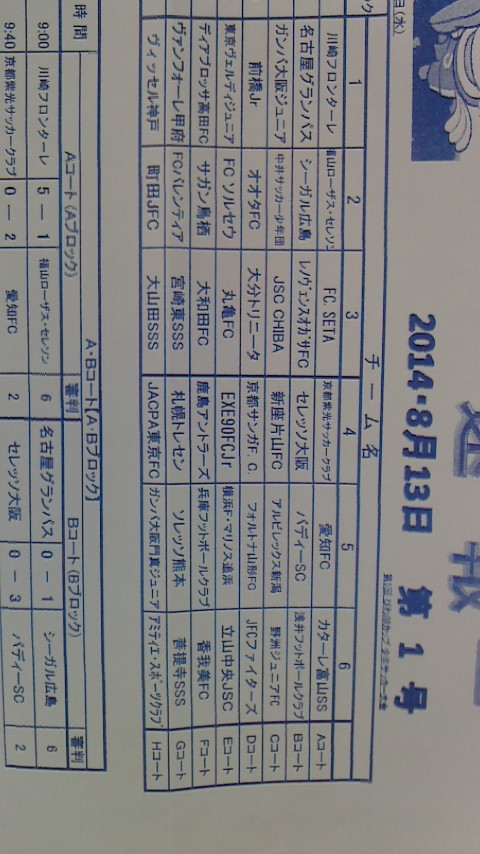 日(水)
速報
2014・8月13日 第1号
ック
チーム名
1 2 3 4 5 6
川崎フロンターレ 福山ローザス・セレソン FC. SETA 京都紫光サッカークラブ 愛知FC カターレ富山SS Aコート
名古屋グランパス シーガル広島 レノヴェンスオガサFC セレッソ大阪 バディーSC 浅井フットボールクラブ Bコート
ガンバ大阪ジュニア 中井サッカー少年団 JSC CHIBA 新座片山FC アルビレックス新潟 野洲ジュニアFC Cコート
前橋Jr オオタFC 大分トリニータ 京都サンガF. C. フォルトナ山形FC JFCファイターズ Dコート
東京ヴェルディジュニア FC ソルセウ 丸亀FC EXE90FCJr 横浜F・マリノス追浜 立山中央JSC Eコート
ディアブロッサ高田FC サガン鳥栖 大和田FC 鹿島アントラーズ 兵庫フットボールクラブ 香我美FC Fコート
ヴァンフォーレ甲府 FCバレンティア 宮崎東SSS 札幌トレセン ソレッソ熊本 菩提寺SSS Gコート
ヴィッセル神戸 町田JFC 大山田SSS JACPA東京FC ガンバ大阪門真ジュニア アミティエ・スポーツクラブ Hコート
A・Bコート【A・Bブロック】
時間 Aコート(Aブロック) 審判 Bコート(Bブロック) 審判
9:00 川崎フロンターレ 5 ― 1 福山ローザス・セレソン 6 名古屋グランパス 0 ― 1 シーガル広島 6
9:40 京都紫光サッカークラブ 0 ― 2 愛知FC 2 セレッソ大阪 0 ― 3 バディーSC 2